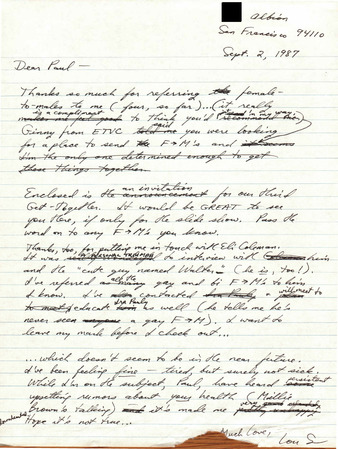 Albion
San Francisco 94110
Sept. 2, 1987
Dear Paul —
Thanks so much for referring the female-
to-males to me (four, so far)...(it really
is a compliment
makes me feel good to think you'd recommend
Ginny from ETVC told me you were looking
said
for a place to send the F→M's and
I'm the only one determined enough to get
those things together.
an invitation
Enclosed is the announcement for our third
Get-Together. It would be GREAT to see
you there, if only for the slide show. Pass the
word on to any F→M's you know.
Thanks, too, for putting me in touch with Eli Coleman.
It was to interview with him
and the "cute guy named Walter" (he is, too!).
all the
I've referred gay and bi F→M's to him
I know. I've contacted
Ira Pauly
as well (he tells me he's
never seen a gay F→M). I want to
leave my mark before I check out...
...which doesn't seem to be in the near future.
I've been feeling fine — tired, but surely not sick.
While I'm on the subject, Paul, have heard
upsetting rumors about your health (Millie
Brown's talking) it's made me
Hope it's not true...
Much love,
Lou S.